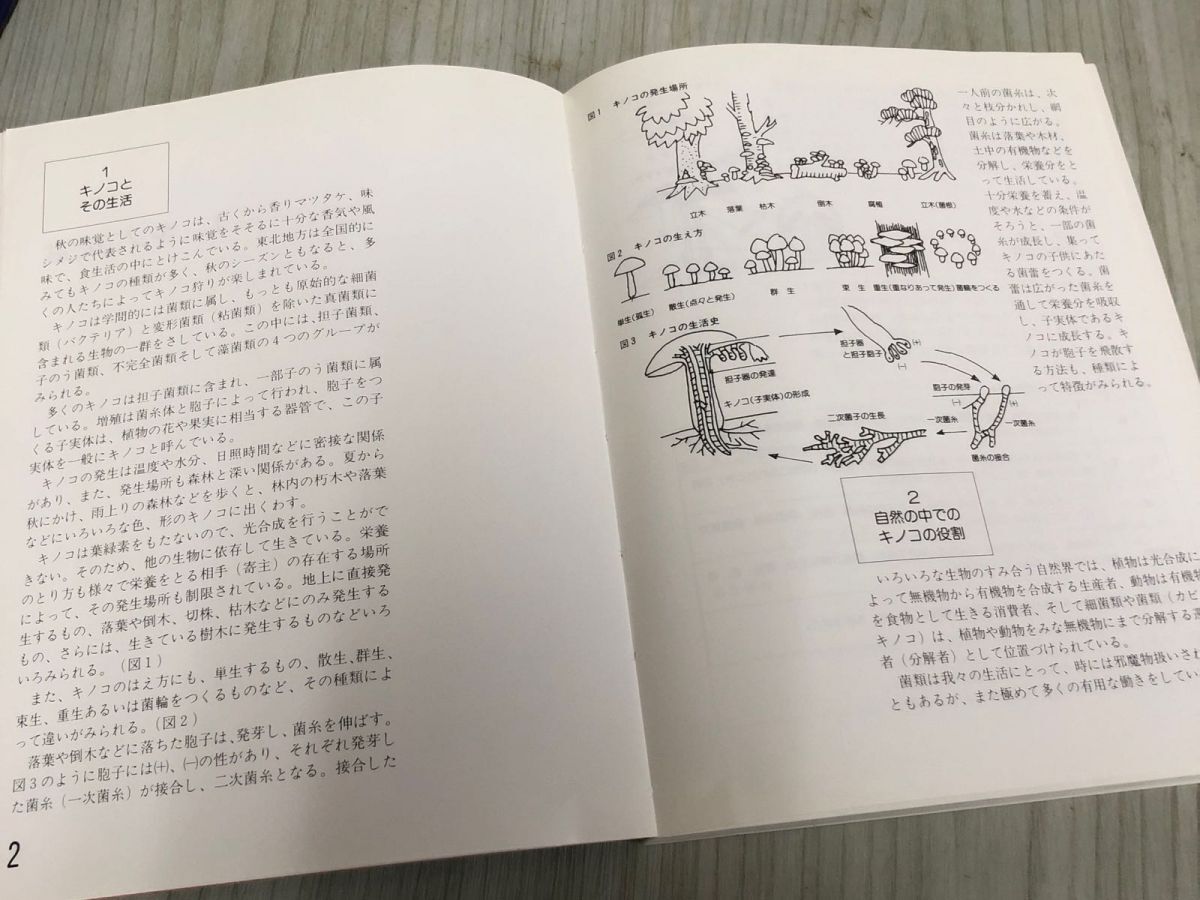 1
キノコと
その生活
秋の味覚としてのキノコは、古くから香りマツタケ、味
シメジで代表されるように味覚をそそるに十分な香気や風
味で、食生活の中にとけこんでいる。東北地方は全国的に
みてもキノコの種類が多く、秋のシーズンともなると、多
くの人たちによってキノコ狩りが楽しまれている。
キノコは学問的には菌類に属し、もっとも原始的な細菌
類(バクテリア)と変形菌類(粘菌類)を除いた真菌類に
含まれる生物の一群をさしている。この中には、担子菌類、
子のう菌類、不完全菌類そして藻菌類の4つのグループが
みられる。
多くのキノコは担子菌類に含まれ、一部子のう菌類に属
している。増殖は菌糸体と胞子によって行われ、胞子をつ
くる子実体は、植物の花や果実に相当する器管で、この子
実体を一般にキノコと呼んでいる。
キノコの発生は温度や水分、日照時間などに密接な関係
があり、また、発生場所も森林と深い関係がある。夏から
秋にかけ、雨上りの森林などを歩くと、林内の朽木や落葉
などにいろいろな色、形のキノコに出くわす。
キノコは葉緑素をもたないので、光合成を行うことがで
きない。そのため、他の生物に依存して生きている。栄養
のとり方も様々で栄養をとる相手(寄主)の存在する場所
によって、その発生場所も制限されている。地上に直接発
生するもの、落葉や倒木、切株、枯木などにのみ発生する
もの、さらには、生きている樹木に発生するものなどいろ
いろみられる。(図1)
また、キノコのはえ方にも、単生するもの、散生、群生、
束生、重生あるいは菌輪をつくるものなど、その種類によ
って違いがみられる。(図2)
落葉や倒木などに落ちた胞子は、発芽し、菌糸を伸ばす。
図3のように胞子には(+)、(−)の性があり、それぞれ発芽し
た菌糸(一次菌糸)が接合し、二次菌糸となる。接合した
2
図1 キノコの発生場所
立木 落葉 枯木 倒木 腐植 立木(菌根)
図2 キノコの生え方
単生(孤生)
散生(点々と発生)
群生
束生 重生(重なりあって発生) 菌輪をつくる
図3 キノコの生活史
担子器の発達
キノコ(子実体)の形成
担子器
と担子胞子
(+)
(−)
胞子の発芽
(−)
(+)
一次菌糸
一次菌糸
菌糸の接合
二次菌子の生長
一人前の菌糸は、次
々と枝分かれし、網
目のように広がる。
菌糸は落葉や木材、
土中の有機物などを
分解し、栄養分をと
って生活している。
十分栄養を蓄え、温
度や水などの条件が
そろうと、一部の菌
糸が成長し、集って
キノコの子供にあた
る菌蕾をつくる。菌
蕾は広がった菌糸を
通して栄養分を吸収
し、子実体であるキ
ノコに成長する。キ
ノコが胞子を飛散す
る方法も、種類によ
って特徴がみられる。
2
自然の中での
キノコの役割
いろいろな生物のすみ合う自然界では、植物は光合成に
よって無機物から有機物を合成する生産者、動物は有機物
を食物として生きる消費者、そして細菌類や菌類(カビ
キノコ)は、植物や動物をみな無機物にまで分解する還
者(分解者)として位置づけられている。
菌類は我々の生活にとって、時には邪魔物扱いされ
ともあるが、また極めて多くの有用な働きをしてい